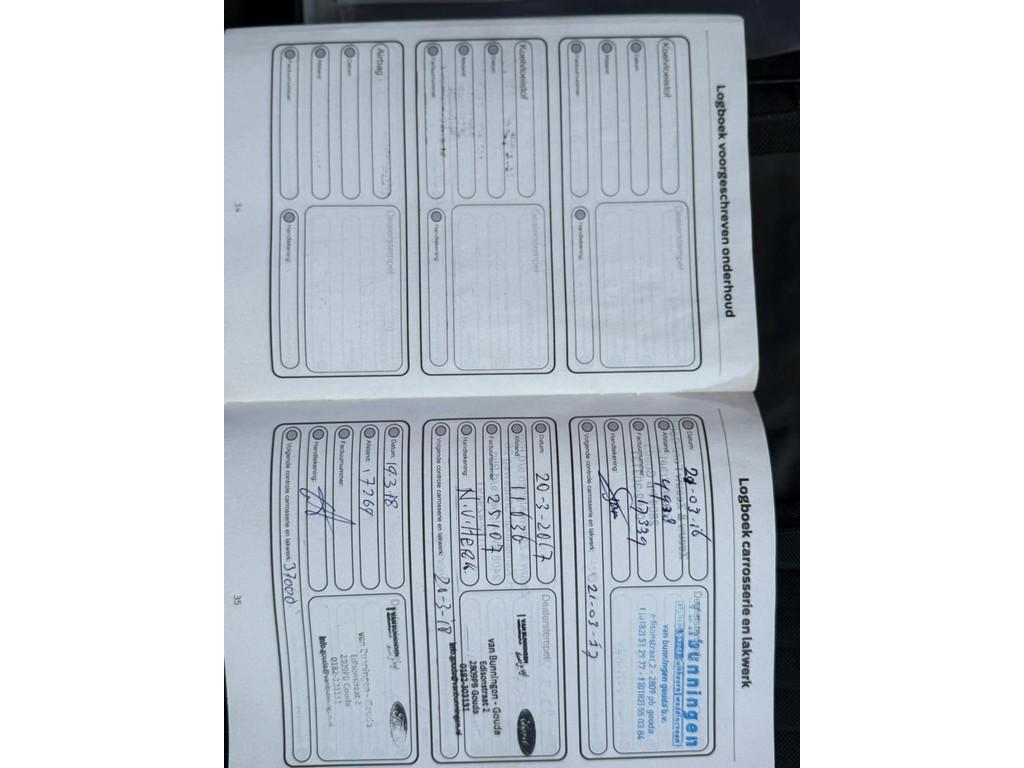 Logboek voorgeschreven onderhoud
Koelvloeistof
Datum:
Afstand:
Factuurnummer:
Dealerstempel
Handtekening:
Koelvloeistof
Datum:
Afstand:
Factuurnummer:
Dealerstempel
Handtekening:
Airbag
Datum:
Afstand:
Factuurnummer:
Dealerstempel
Handtekening:
34
Logboek carrosserie en lakwerk
Datum:
Afstand:
Factuurnummer: 17339
Handtekening:
Volgende controle carrosserie en lakwerk: 21-03-17
bunningen
van bunningen gouda b.v.
edisonstraat 2 - 2809 pb gouda
t (0182) 51 29 77 - f (0182) 55 03 84
Datum: 20-3-2017
Afstand: 11636
Factuurnummer: 25107
Handtekening:
Volgende controle carrosserie en lakwerk: 20-3-18
Dealerstempel
VAN BUNNINGEN
Ford
van Bunningen - Gouda
Edisonstraat 2
2809PB Gouda
0182-303131
info.gouda@vanbunningen.nl
Datum: 19.3.18
Afstand: 17267
Factuurnummer:
Handtekening:
Volgende controle carrosserie en lakwerk: 37000
VAN BUNNINGEN
van Bunningen - Gouda
Edisonstraat 2
2809PB Gouda
0182-303131
35